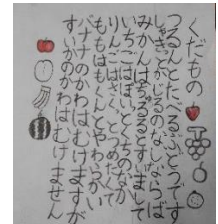 くだもの
つるんとたべるぶどうです
しゃきっとかじるのなしならば
みかんはちゅるるとすいまして
いちごはぽいっとくちのなか
りんごはさくっとかみくだく
ももはもぐんとやわらかい
バナナのかわはむけますが
すいかのかわはむけません